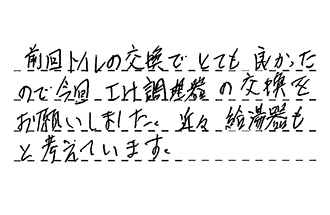 前回トイレの交換でとても良かった
ので今回 IH調理器の交換を
お願いしました。近々給湯器も
と考えています。